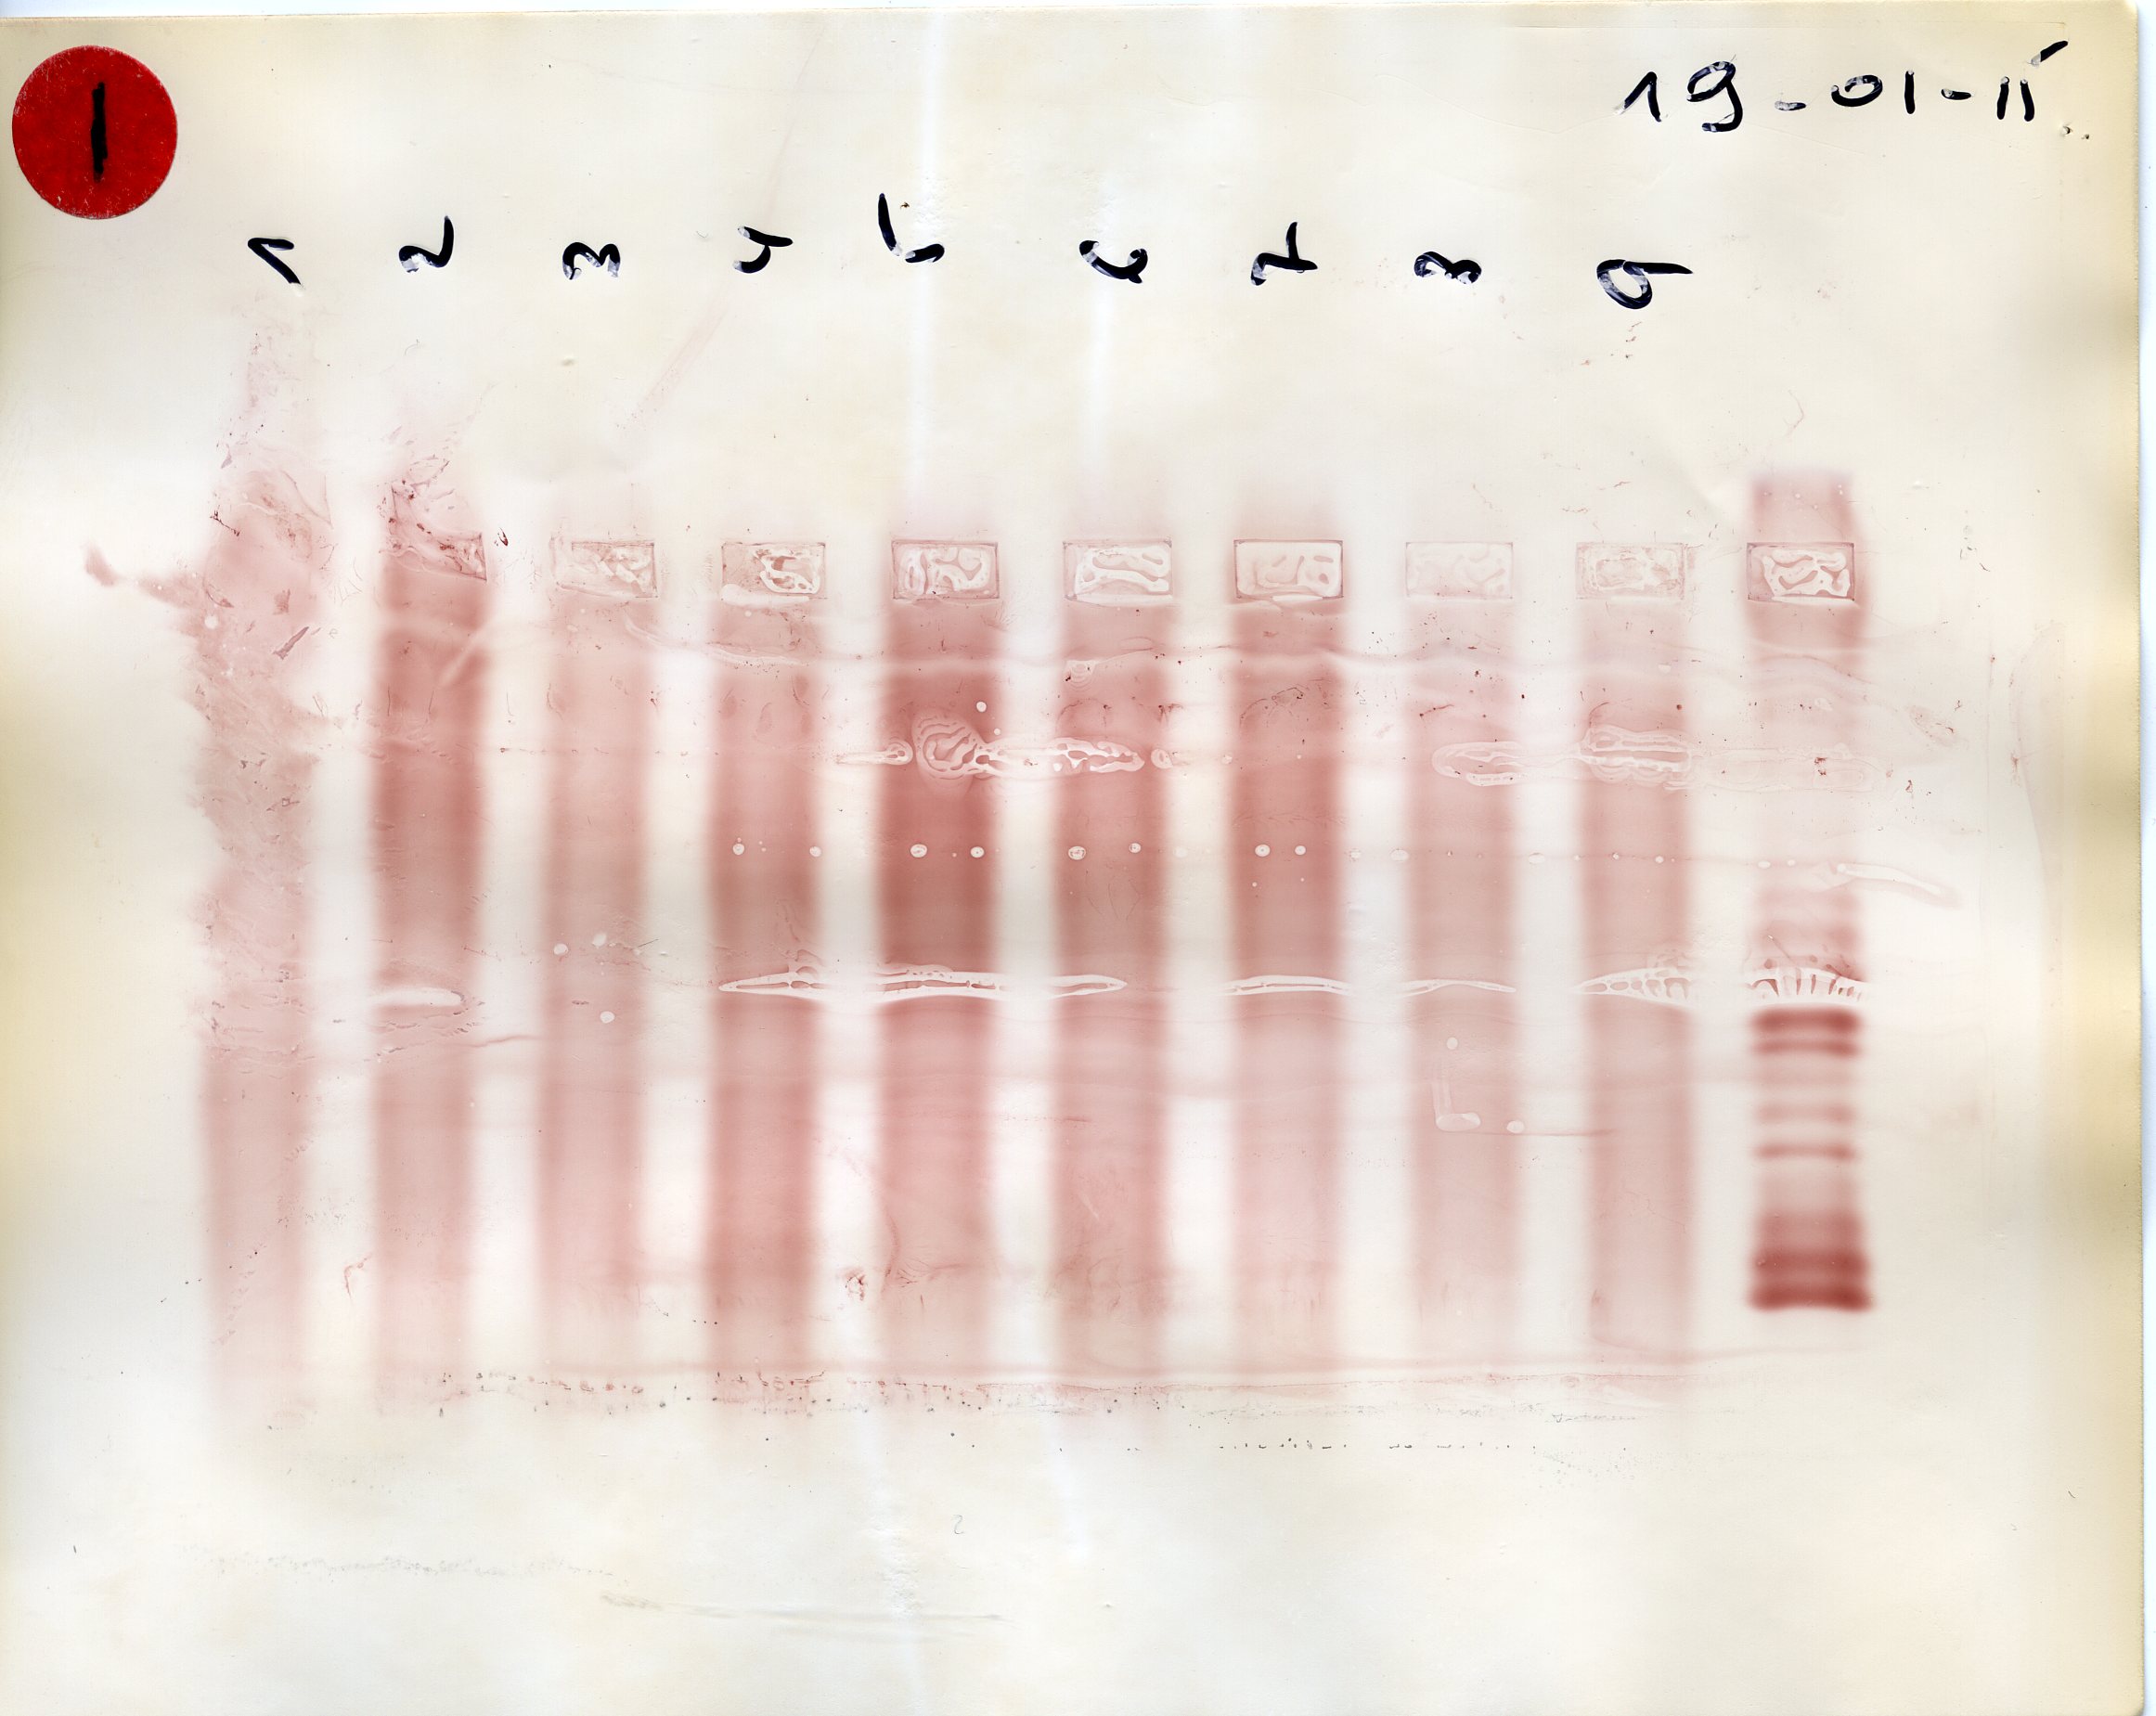 1
19-01-11
1 2 3 4 5 6 7 8 9